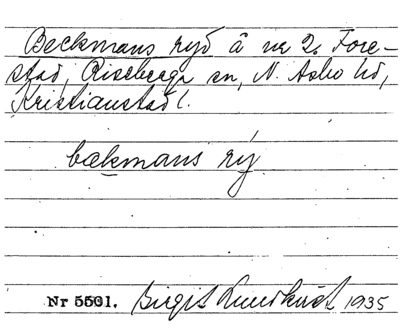 Beckmans ryd å nr 2. Fore-
stad, Riseberga sn, N. Åsbo hd,
Kristianstad l.
bækmans rý
Nr 5501. Birgit Lundkvist 1935